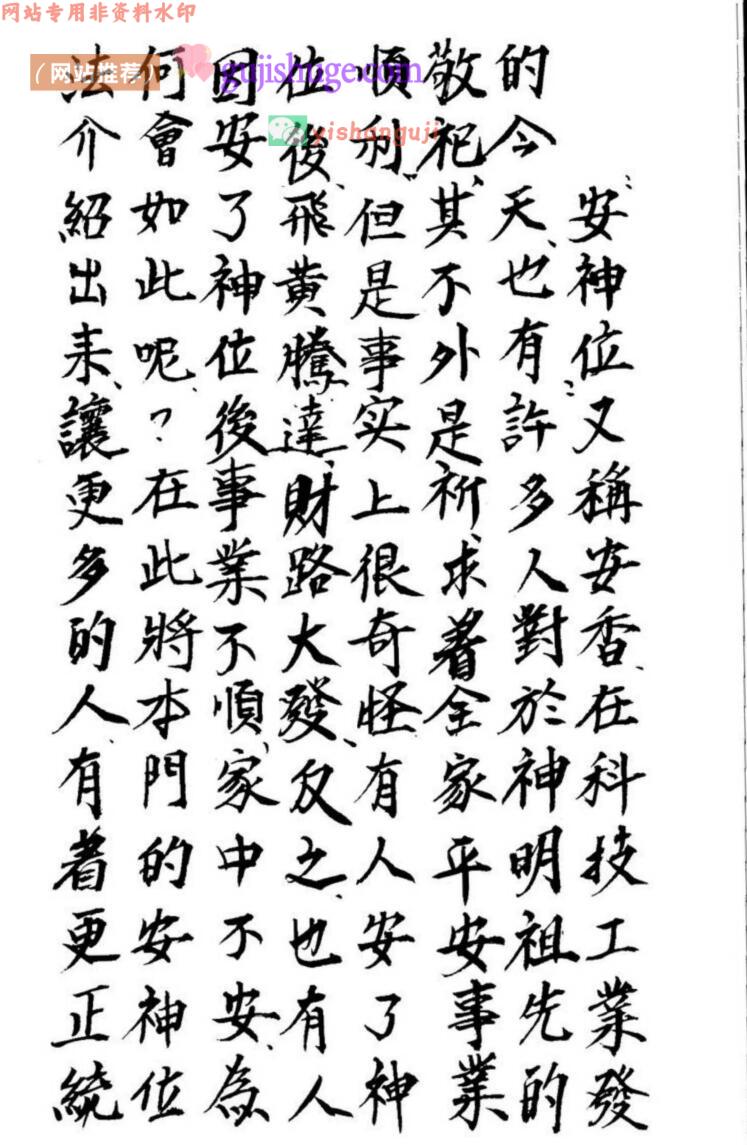 网站专用非资料水印
(网站推荐)
gujishuge.com
yishanguji
安神位又稱安香、在科技工業發
的今天、也有許多人對於神明祖先的
敬祀、其不外是祈求着全家平安事業
順利、但是事实上很奇怪有人安了神
位後、飛黃騰達、財路大發、反之、也有人
因安了神位後事業不順、家中不安、為
何會如此呢、?在此將本門的安神位
法介紹出来、讓更多的人、有着更正統